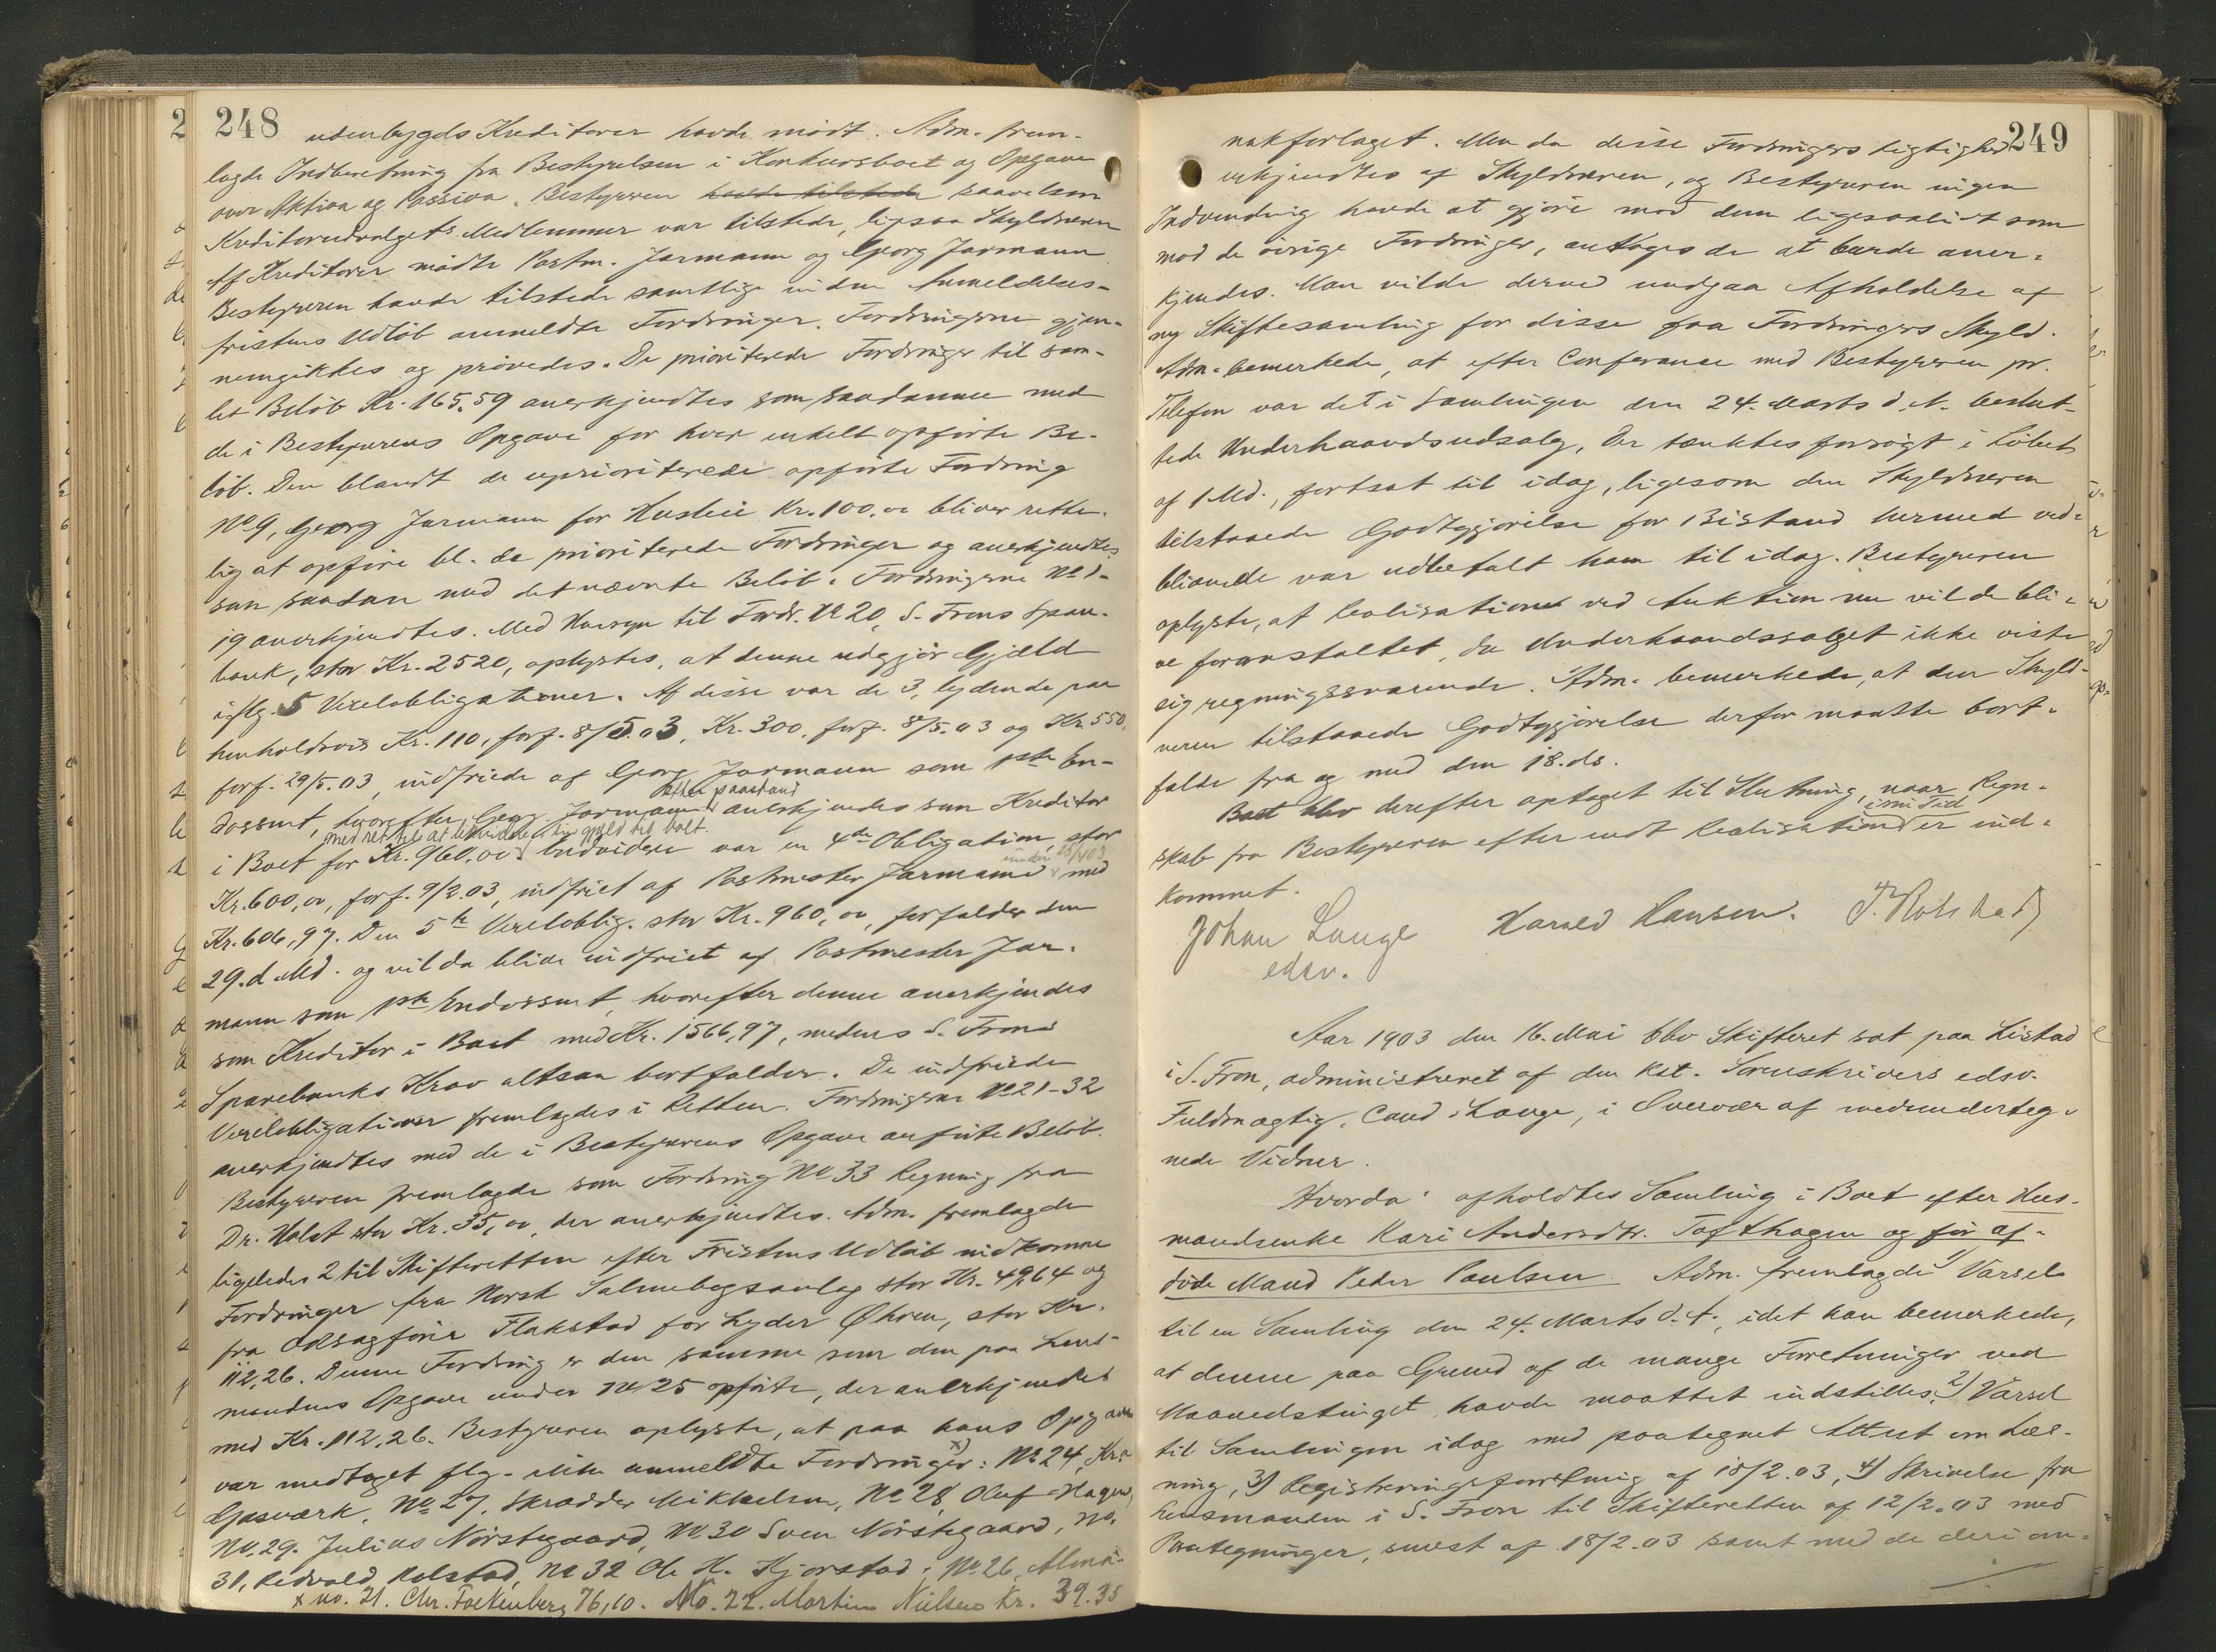 248
udenbygds Kreditorer havde mødt. Adm. frem-
lagde Indberetning fra Bestyrelsen i Konkursboet og Opgave
over Aktiva og Passiva. Bestyreren havde tilstede saavelsom
Kreditorudvalgets Medlemmer var tilstede, ligesaa Skyldneren
Af Kreditorer mødte Postm. Jarmann og Georg Jarmann.
Bestyreren havde tilstede samtlige inden Anmeldelses-
fristens Udløb anmeldte Fordringer. Fordringerne gjen-
nemgikkes og prøvedes. De prioriterede Fordringer til sam-
let Beløb Kr. 165.59 anerkjendtes som saadanne med
de i Bestyrerens Opgave for hver enkelt opførte Be-
løb. Den blandt de uprioriterede opførte Fordring
No 9, Georg Jarmann for Husleie Kr. 100.00 bliver rette-
lig at opføre bl. de prioriterede Fordringer og anerkjendtes
som saadan med det nævnte Beløb. Fordringerne No 1-
19 anerkjendtes. Med Hensyn til Fordr. No 20, S. Frons Spare-
bank, stor Kr. 2520, oplystes, at denne udgjør Gjæld
iflg. 5 Vexelobligationer. Af disse var de 3, lydende paa
henholdsvis Kr. 110, forf. 8/5.03, Kr. 300, forf. 8/5.03 og Kr. 550,
forf. 29/5.03, indfriede af Georg Jarmann som 1ste En-
dossent, hvorefter Georg Jarmann efter paastand anerkjendes som Kreditor
i Boet for Kr. 960,00 med ret til at likvidere sin gjæld til boet. Endvidere var en 4de Obligation, stor
Kr. 600,00, forf. 9/2.03, indfriet af Postmester Jarmann med
Kr. 606,97. Den 5te Vexeloblig. stor Kr. 960,00, forfalder den
29. d. Md. og vil da blive indfriet af Postmester Jar-
mann som 1ste Endossent, hvorefter denne anerkjendes
som Kreditor i Boet med Kr. 1566,97, medens S. Frons
Sparebanks Krav altsaa bortfalder. De indfriede
Vexelobligationer fremlagdes i Retten. Fordringerne No 21-32
anerkjendtes med de i Bestyrerens Opgave anførte Beløb.
Bestyreren fremlagde som Fordring No 33 Regning fra
Dr. Holst stor Kr. 35,00, der anerkjendtes. Adm. fremlagde
ligeledes 2 til Skifteretten efter Fristens Udløb indkomne
Fordringer fra Norsk Salmebogsanlag stor Kr. 49,64 og
fra Odsagfører Flakstad for Lyder Øhren, stor Kr.
112,26. Denne Fordring er den samme som den paa Lens-
mandens Opgave under No 25 opførte, der anerkjendes
med Kr. 112,26. Bestyreren oplyste, at paa hans Opgave
var medtaget flg. ikke anmeldte Fordringer x): No 24, Kra
Gasværk, No 27, Skrædder Mikkelsen, No 28, Oluf Hagen,
No. 29. Julius Nørstegaard, No 30 Sven Nørstegaard, No.
31, Redvald Kolstad, No 32 Ole H. Kjorstad; No. 26, Alma-
x no. 21. Chr. Falkenberg 76,10. No. 22. Martin Nielsen Kr. 39.35
249
nakforlaget. Men da disse Fordringers Rigtighed
erkjendtes af Skyldneren, og Bestyreren ingen
Indvending havde at gjøre mod dem ligesaalidt som
mod de øvrige Fordringer, antoges de at burde aner-
kjendes. Man vilde derved undgaa Afholdelse af
ny Skiftesamling for disse faa Fordringers Skyld.
Adm. bemerkede, at efter Conferance med Bestyreren pr.
Telefon var det i Samlingen den 24. Marts d. A. beslut-
tede Underhaandsudsalg, der tænktes forsøgt i Løbet
af 1 Md., fortsat til idag, ligesom den Skyldneren
tilstaaede Godtgjørelse for Bistand hermed ved-
blivende var udbetalt ham til idag. Bestyreren
oplyste, at Realisation ved Auktion nu vilde bli-
ve foranstaltet, da Underhaandssalget ikke viste
sig regningssvarende. Adm. bemerkede, at den Skyld-
neren tilstaaede Godtgjørelse derfor maatte bort-
falde fra og med den 18. ds.
Boet blev derefter optaget til Slutning, naar Regn-
skab fra Bestyreren efter endt Realisation i sin Tid er ind-
kommet.
Johan Lange Harald Hansen.
edsv.
Aar 1903 den 16. Mai blev Skifteret sat paa Listad
i S. Fron, administreret af den Kst. Sorenskrivers edsv.
Fuldmægtig, Cand. Lange, i Overvær af medunderteg-
nede Vidner.
Hvorda: afholdtes Samling i Boet efter Hus-
mandsenke Kari Andersdtr. Tofthagen og før af-
døde Mand Peder Paulsen. Adm. fremlagde 1) Varsel
til en Samling den 24. Marts d. A., idet han bemerkede,
at denne paa Grund af de mange Forretninger ved
Maanedstinget havde maattet indstilles, 2) Varsel
til Samlingen idag med paategnet Attest om Læs-
ning, 3) Registreringsforretning af 18/2.03, 4) Skrivelse fra
Lensmanden i S. Fron til Skifteretten af 12/2.03 med
Paategninger, senest af 18/2.03 samt med de deri om-